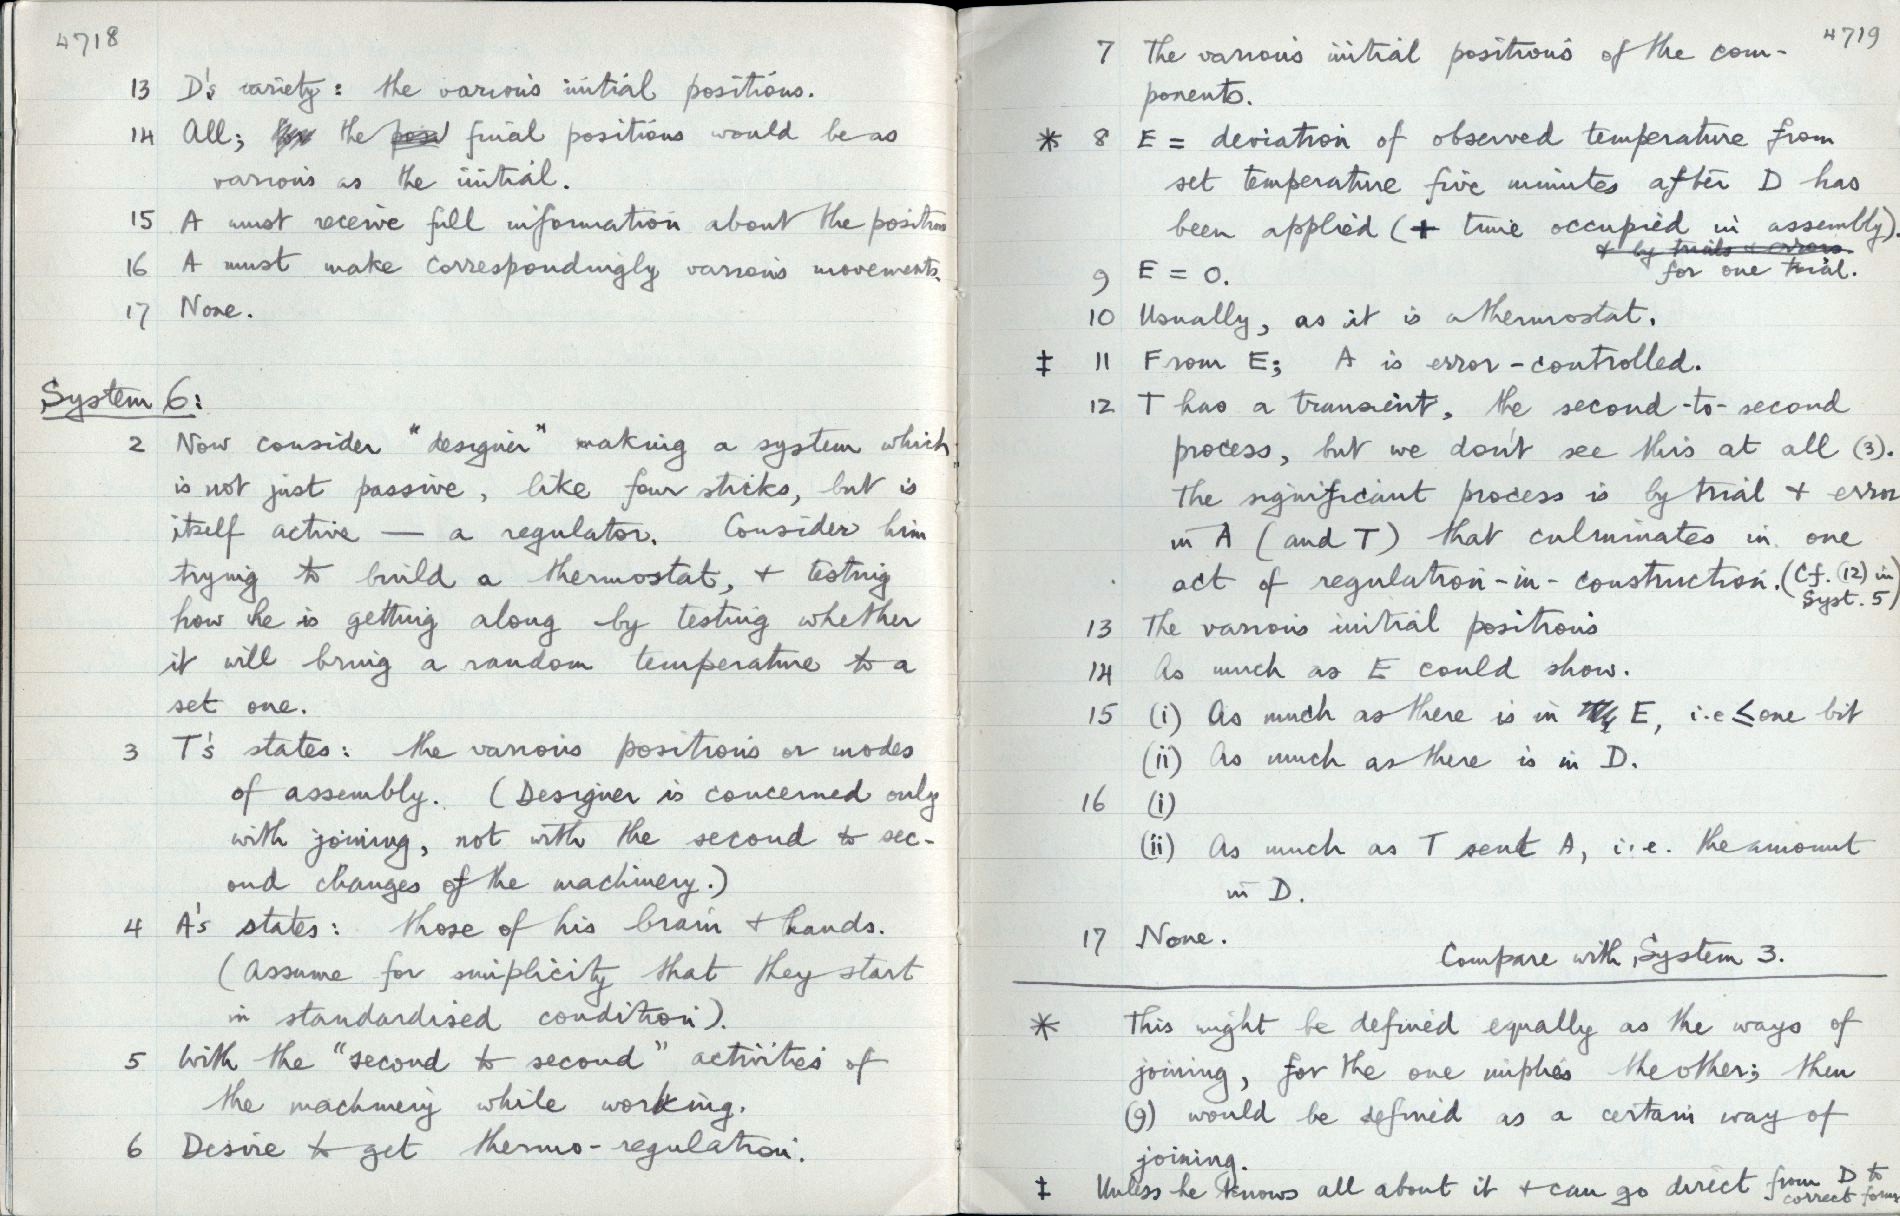 4718
13 D's variety: the various initial positions.
14 All; the final positions would be as
various as the initial.
15 A must receive full information about the positions
16 A must make correspondingly various movements.
17 None.
System 6:
2 Now consider "designer" making a system which
is not just passive, like four sticks, but is
itself active — a regulator. Consider him
trying to build a thermostat, & testing
how he is getting along by testing whether
it will bring a random temperature to a
set one.
3 T's states: the various positions or modes
of assembly. (Designer is concerned only
with joining, not with the second to sec-
ond changes of the machinery.)
4 A's states: those of his brain & hands.
(Assume for simplicity that they start
in standardised condition).
5 With the "second to second" activities of
the machinery while working.
6 Desire to get thermo-regulation.
4719
7 The various initial positions of the com-
ponents.
* 8 E = deviation of observed temperature from
set temperature five minutes after D has
been applied (+ time occupied in assembly).
& by trials & errors
for one trial.
9 E = 0.
10 Usually, as it is a thermostat.
‡ 11 From E; A is error-controlled.
12 T has a transient, the second-to-second
process, but we don't see this at all (3).
The significant process is by trial & error
in A (and T) that culminates in one
act of regulation-in-construction. (Cf. (12) in
Syst. 5)
13 The various initial positions
14 As much as E could show.
15 (i) As much as there is in E, i.e ≤ one bit
(ii) As much as there is in D.
16 (i)
(ii) As much as T sent A, i.e. the amount
in D.
17 None.
Compare with System 3.
* This might be defined equally as the ways of
joining, for the one implies the other; then
(9) would be defined as a certain way of
joining.
‡ Unless he knows all about it & can go direct from D to
correct form